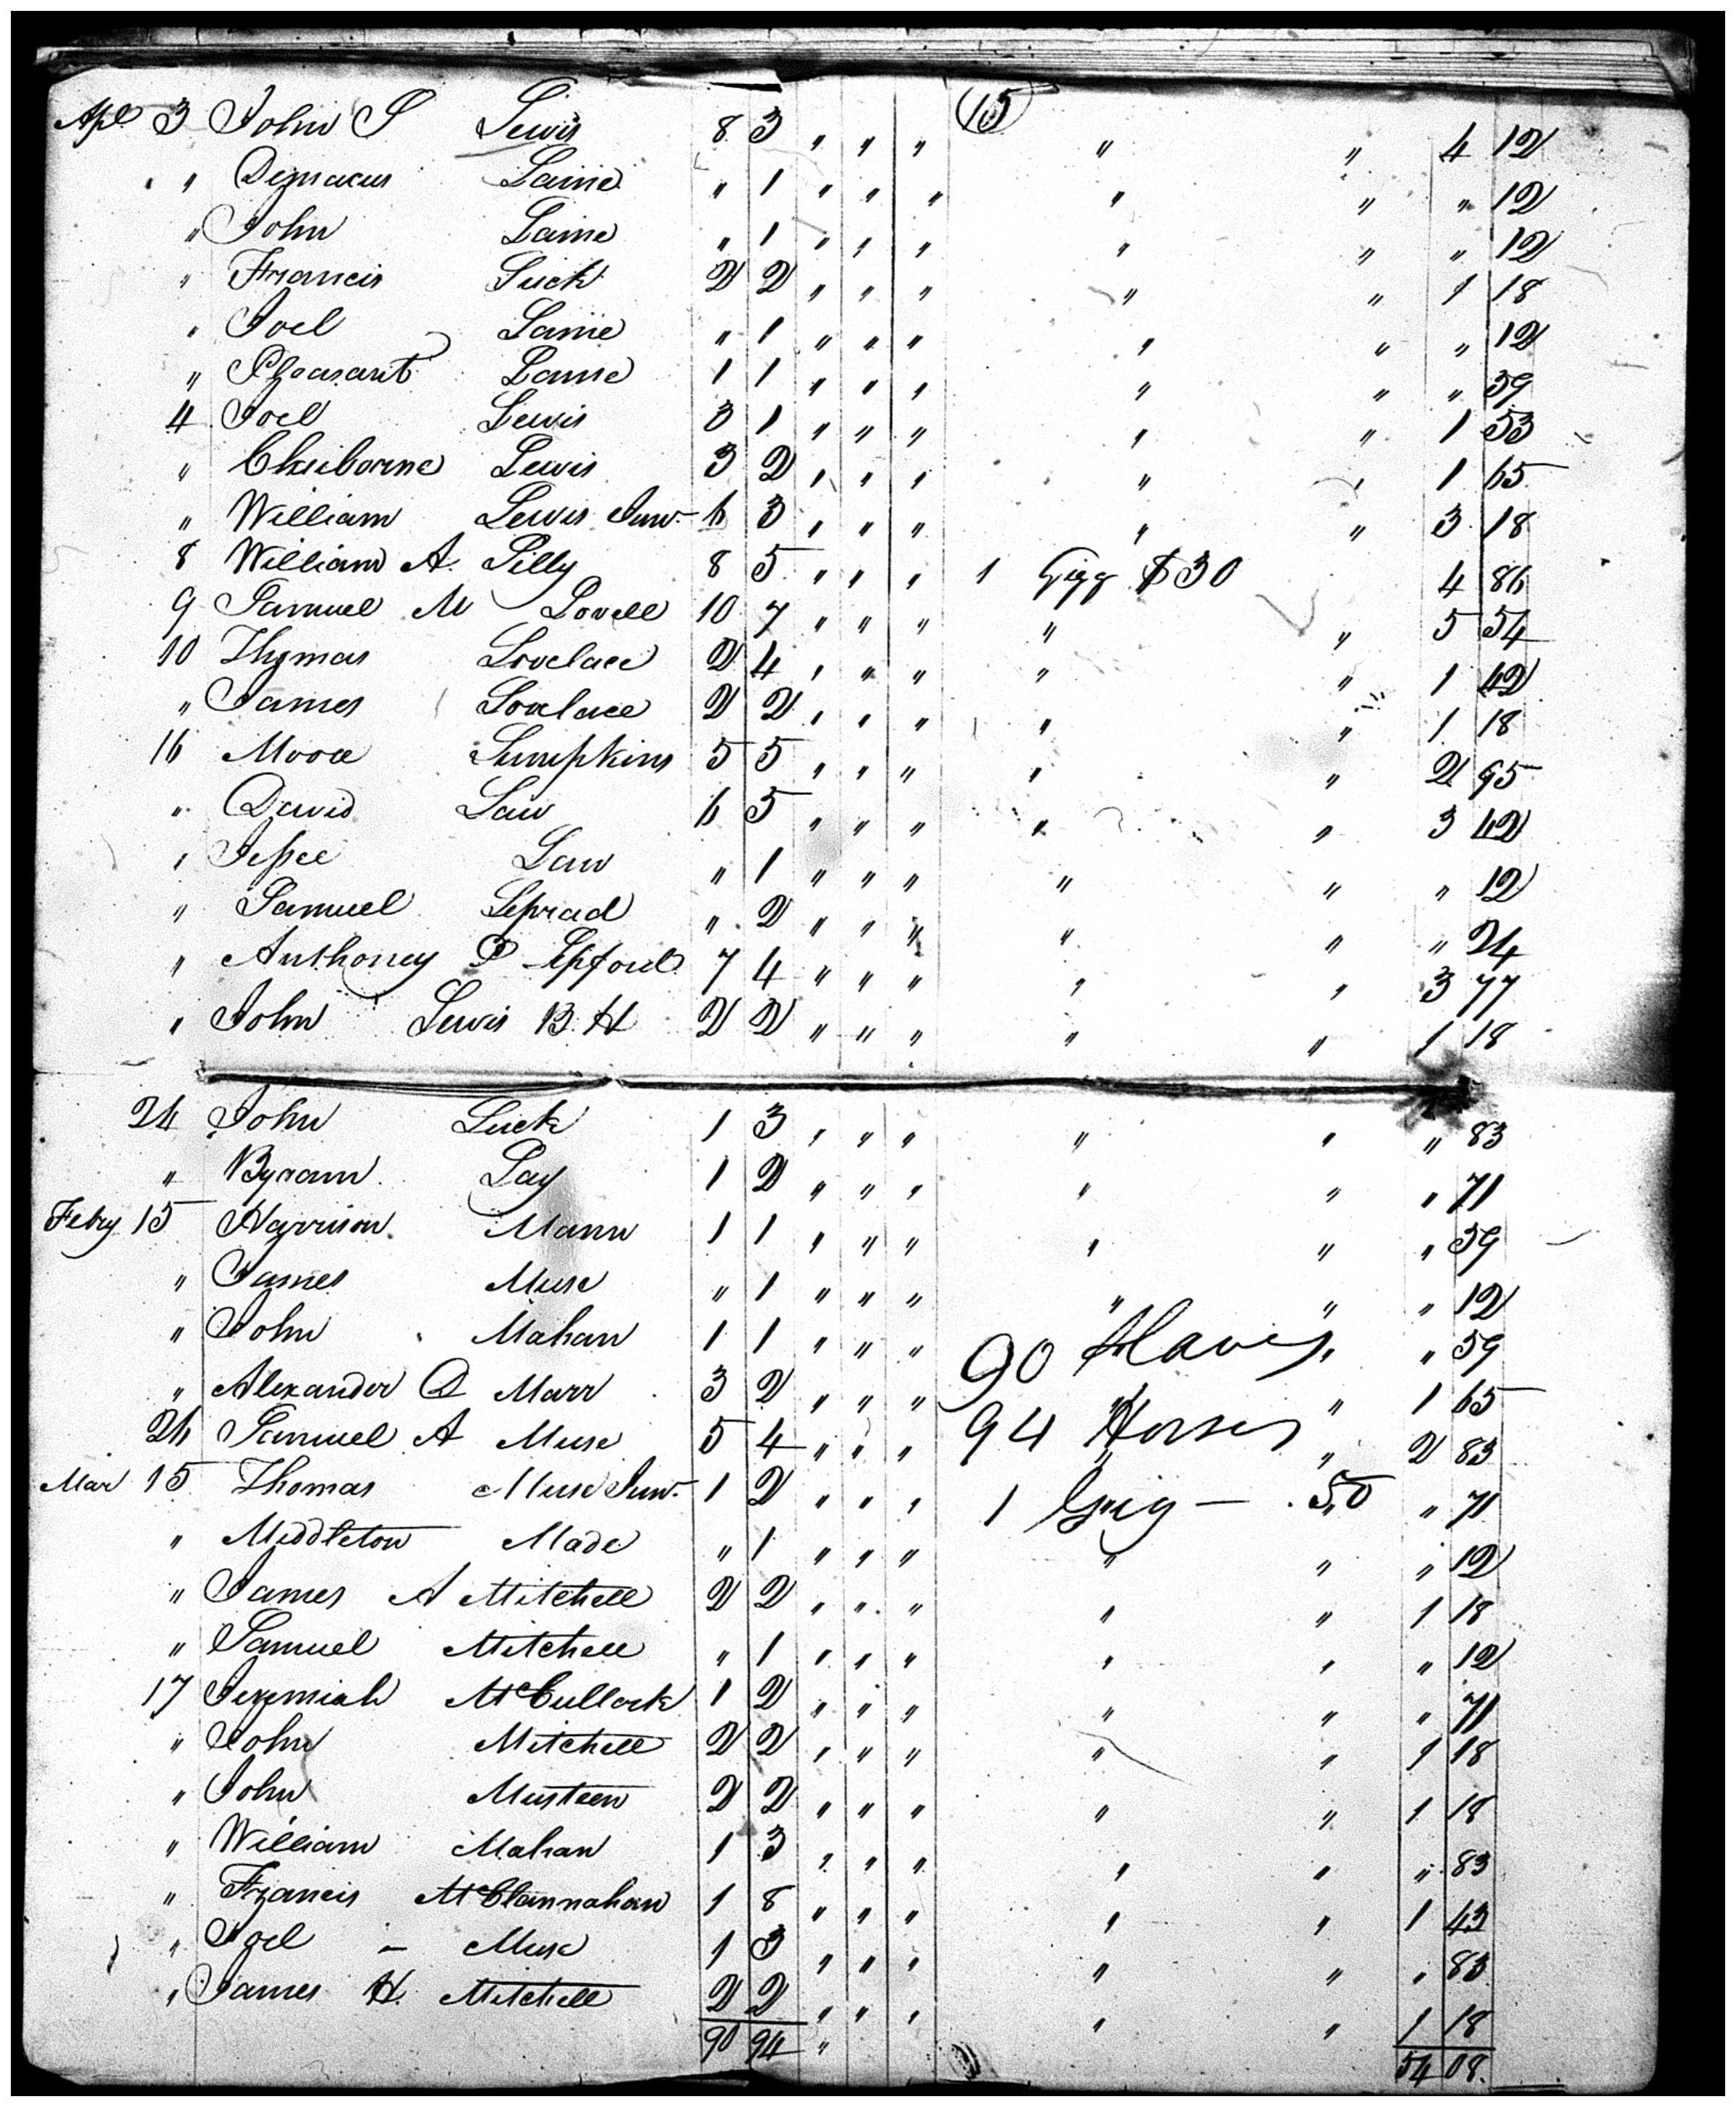 15
Apl 3 John S Lewis 8 3 " " " " " 4 12
" Demacus Laine " 1 " " " " " " 12
" John Laine " 1 " " " " " " 12
" Francis Luck 2 2 " " " " " 1 18
" Joel Laine " 1 " " " " " " 12
" Pleasant Laine 1 1 " " " " " " 59
4 Joel Lewis 3 1 " " " " " 1 53
" Cleiborne Lewis 3 2 " " " " " 1 65
" William Lewis Junr 6 3 " " " " " 3 18
8 William A. Lilly 8 5 " " " 1 Gigg $30 4 86
9 Samuel M Lovell 10 7 " " " " " 5 54
10 Thomas Lovelace 2 4 " " " " " 1 42
" James Lovelace 2 2 " " " " " 1 18
16 Moore Lumpkins 5 5 " " " " " 2 95
" David Law 6 5 " " " " " 3 42
" Jessee Law " 1 " " " " " " 12
" Samuel Leprad " 2 " " " " " " 24
" Anthoney P 7 4 " " " " " 3 77
" John Lewis B. H 2 2 " " " " " 1 18
24 John Luck 1 3 " " " " " " 83
" Byram Lay 1 2 " " " " " " 71
Feby 15 Harrison Mann 1 1 " " " " " " 59
" James Muse " 1 " " " " " " 12
" John Mahan 1 1 " " " 90 Slaves " " 59
" Alexander D Marr 3 2 " " " " " 1 65
26 Samuel A Muse 5 4 " " " 94 Horses " 2 83
Mar 15 Thomas Muse Junr 1 2 " " " 1 Gig — .50 " 71
" Middleton Made " 1 " " " " " " 12
" James A Mitchell 2 2 " " " " " 1 18
" Samuel Mitchell " 1 " " " " " " 12
17 Jeremiah McCullock 1 2 " " " " " " 71
" John Mitchell 2 2 " " " " " 1 18
" John Musteen 2 2 " " " " " 1 18
" William Mahan 1 3 " " " " " " 83
" Francis McClannahan 1 8 " " " " " 1 43
" Joel - Muse 1 3 " " " " " " 83
" James H. Mitchell 2 2 " " " " " 1 18
90 94 " 54 08.